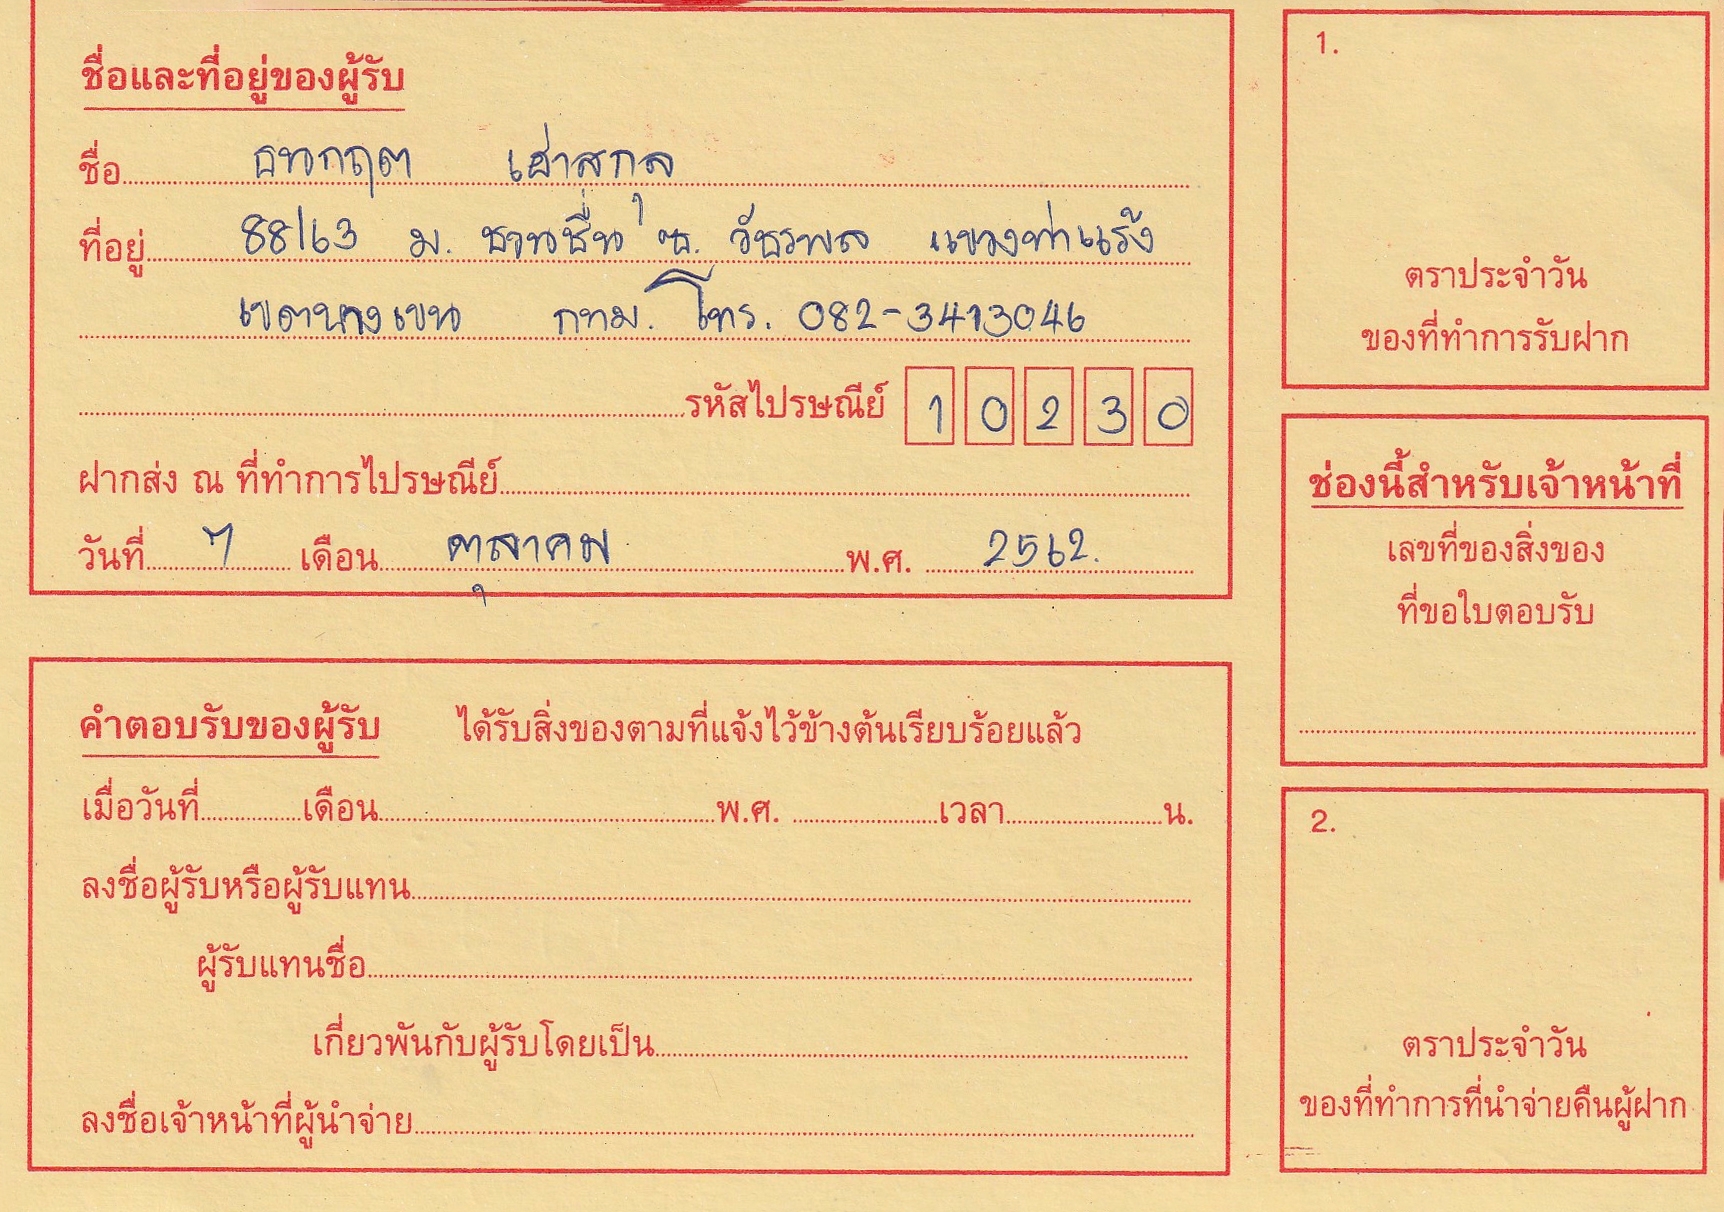 ชื่อและที่อยู่ของผู้รับ
ชื่อ ธนกฤต เฮ่าสกุล
ที่อยู่ 88/63 ม. ชวนชื่น ซ. วัชรพล แขวงท่าแร้ง
เขตบางเขน กทม. โทร. 082-3413046
รหัสไปรษณีย์ 10230
ฝากส่ง ณ ที่ทำการไปรษณีย์
วันที่ 7 เดือน ตุลาคม พ.ศ. 2562.
คำตอบรับของผู้รับ ได้รับสิ่งของตามที่แจ้งไว้ข้างต้นเรียบร้อยแล้ว
เมื่อวันที่ เดือน พ.ศ. เวลา น.
ลงชื่อผู้รับหรือผู้รับแทน
ผู้รับแทนชื่อ
เกี่ยวพันกับผู้รับโดยเป็น
ลงชื่อเจ้าหน้าที่ผู้นำจ่าย
1.
ตราประจำวัน
ของที่ทำการรับฝาก
ช่องนี้สำหรับเจ้าหน้าที่
เลขที่ของสิ่งของ
ที่ขอใบตอบรับ
2.
ตราประจำวัน
ของที่ทำการที่นำจ่ายคืนผู้ฝาก